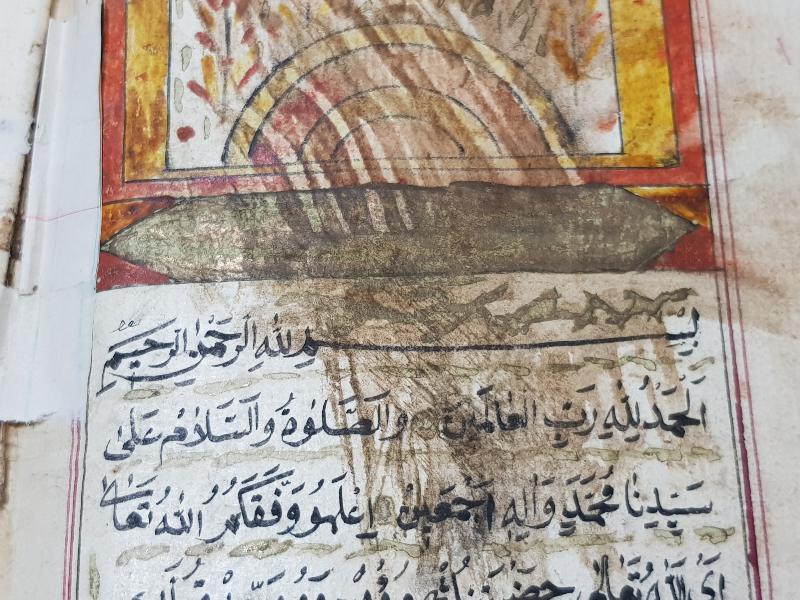 بِسْمِ اللّٰهِ الرَّحْمٰنِ الرَّحِيْمِ
اَلْحَمْدُ لِلّٰهِ رَبِّ الْعَالَمِيْنَ وَالصَّلٰوةُ وَالسَّلَامُ عَلٰى
سَيِّدِنَا مُحَمَّدٍ وَاٰلِهٖ اَجْمَعِيْنَ اِعْلَمُوْ وَفَّقَكُمُ اللّٰهُ تَعَالٰى
اللّٰهَ تَعَالٰى